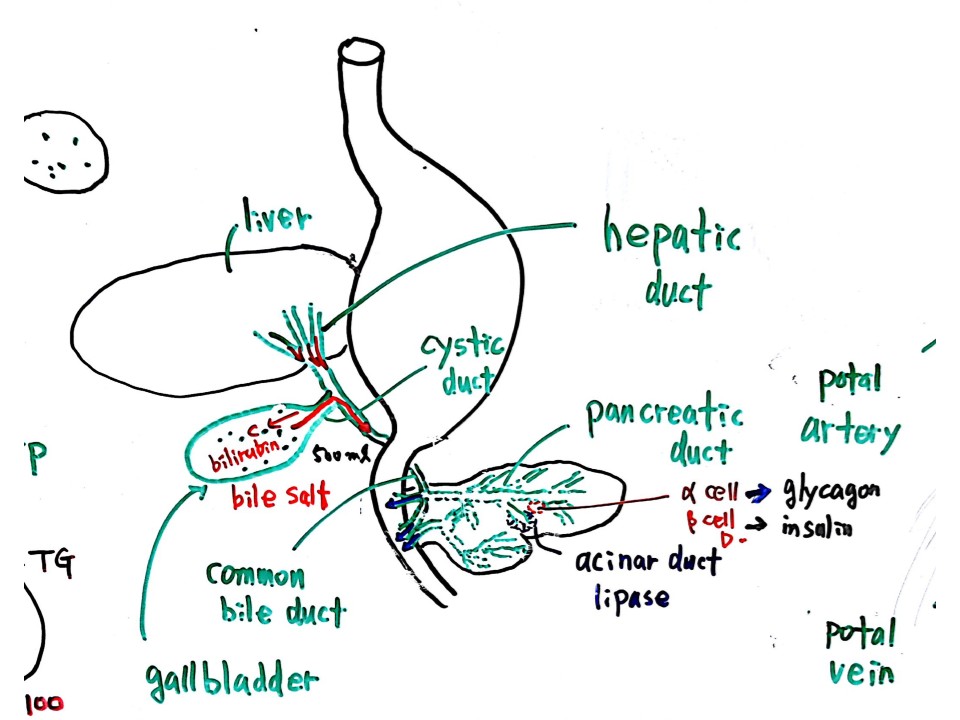 liver
hepatic
duct
cystic
duct
potal
artery
pancreatic
duct
P
bilirubin
500 ml
bile salt
α cell → glycagon
β cell → insalin
D-
acinar duct
lipase
TG
common
bile duct
potal
vein
gallbladder
100